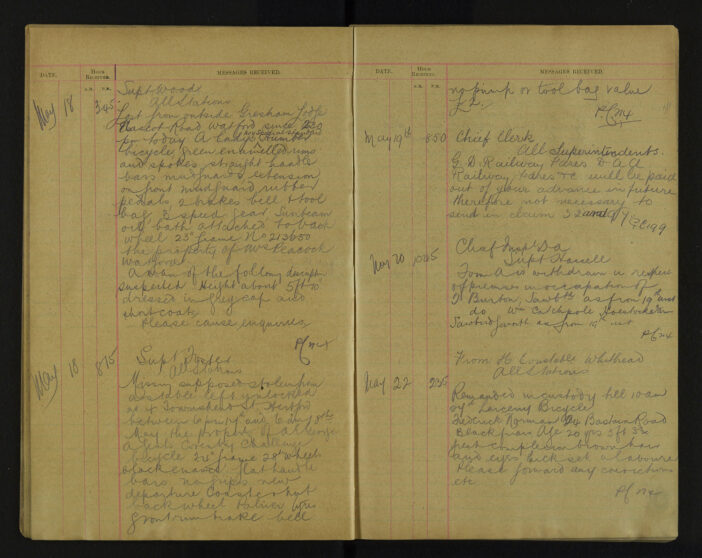 DATE.
HOUR RECEIVED.
MESSAGES RECEIVED.
A.M. P.M.
May 18
3.45
Supt Woods
All Stations
Lost from outside Gresham
Road Watford since 2.30
pm today A Lady's
bicycle green enamelled rims
and spokes straight handle
bars mudguards extension
on front mudguard rubber
pedals 2 brakes bell & tool
bag 3 speed gear Sunbeam
oil bath attached to back
wheel 23" frame No 213650
the property of Mrs Peacock
Watford
A man of the following descript
suspected Height about 5ft 10"
dressed in grey cap and
short coat
Please cause enquiries
May 18
8.15
Supt Foster
All Stations
Missing supposed stolen from
a stable left unlocked
at 4 Townshend St Hertford
between 6 pm 7th and 6 am 8th
May the property of
A Gents County Challenge
cycle 24" frame 28" wheels
black enamel flat handle
bars no grips new
departure Coaster hub
back wheel Palmer tyres
front rim brake bell
DATE.
HOUR RECEIVED.
MESSAGES RECEIVED.
A.M. P.M.
no pump or tool bag value
£2.
May 19th
8.50
Chief Clerk
All Superintendents.
G.O. Railway Fares &c All
Railway fares &c will be paid
out of your advance in future
therefore not necessary to
send in claim
May 20
Chief Insp
Supt
Form A is withdrawn in respect
of premises in occupation of
Burton, Sawbth as from 19th inst
do Wm Catchpole
Sawbridgeworth as from 19th inst
May 22
2.35
From H Constable Whitehead
All Stations
Remanded in custody till 10 am
Larceny Bicycle
Frederick Norman 24 Road
Age 20 yrs 5 ft 3¾
fresh complexion brown hair
and eyes thick set a labourer
Please forward any convictions
etc